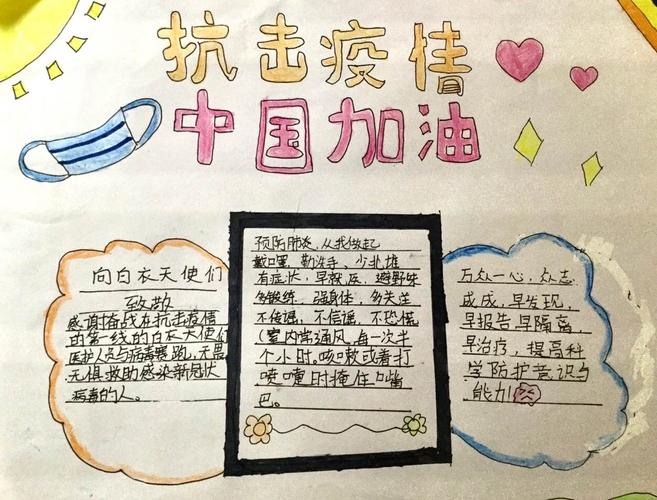 抗击疫情
中国加油
向白衣天使们
致敬
感谢奋战在抗击疫情
的第一线的白衣天使们
医护人员与病毒赛跑,无畏
无惧救助感染新冠状
病毒的人。
预防肺炎,从我做起
戴口罩,勤洗手,少扎堆
有症状,早就医,避野味
多锻炼,强身体,多关注
不传谣,不信谣,不恐慌
(室内常通风,每一次半
个小时,咳嗽或者打
喷嚏时掩住口嘴
巴。
万众一心,众志
成成,早发现,
早报告,早隔离,
早治疗,提高科
学防护意识与
能力